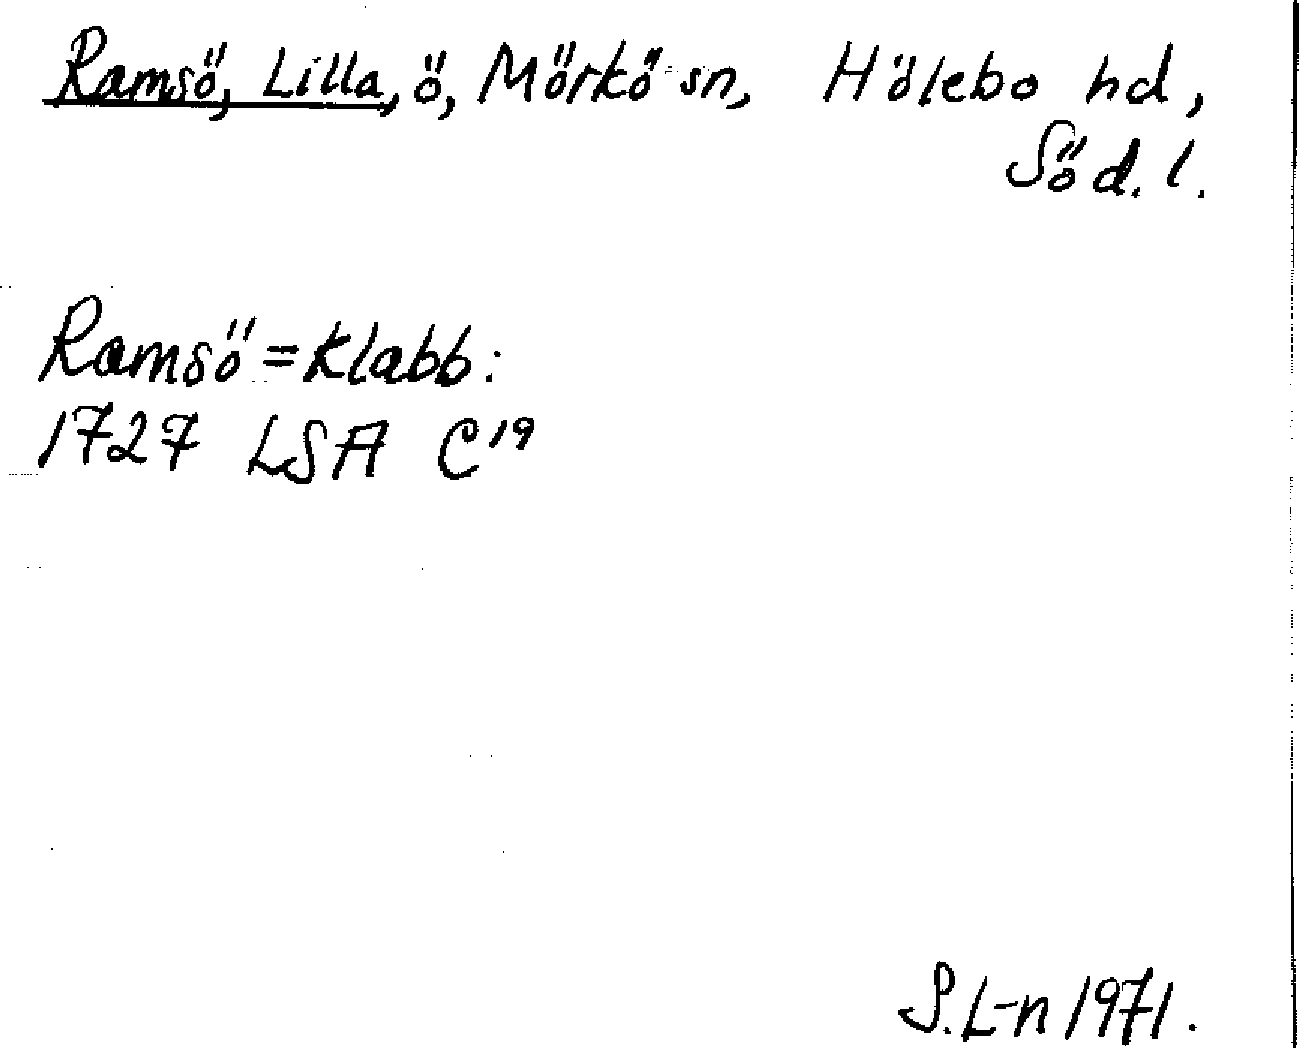 Ramsö, Lilla, ö, Mörkö sn, Hölebo hd,
Söd. l.
Ramsö=Klabb:
1727 LSA C¹⁹
S.L-n 1971.